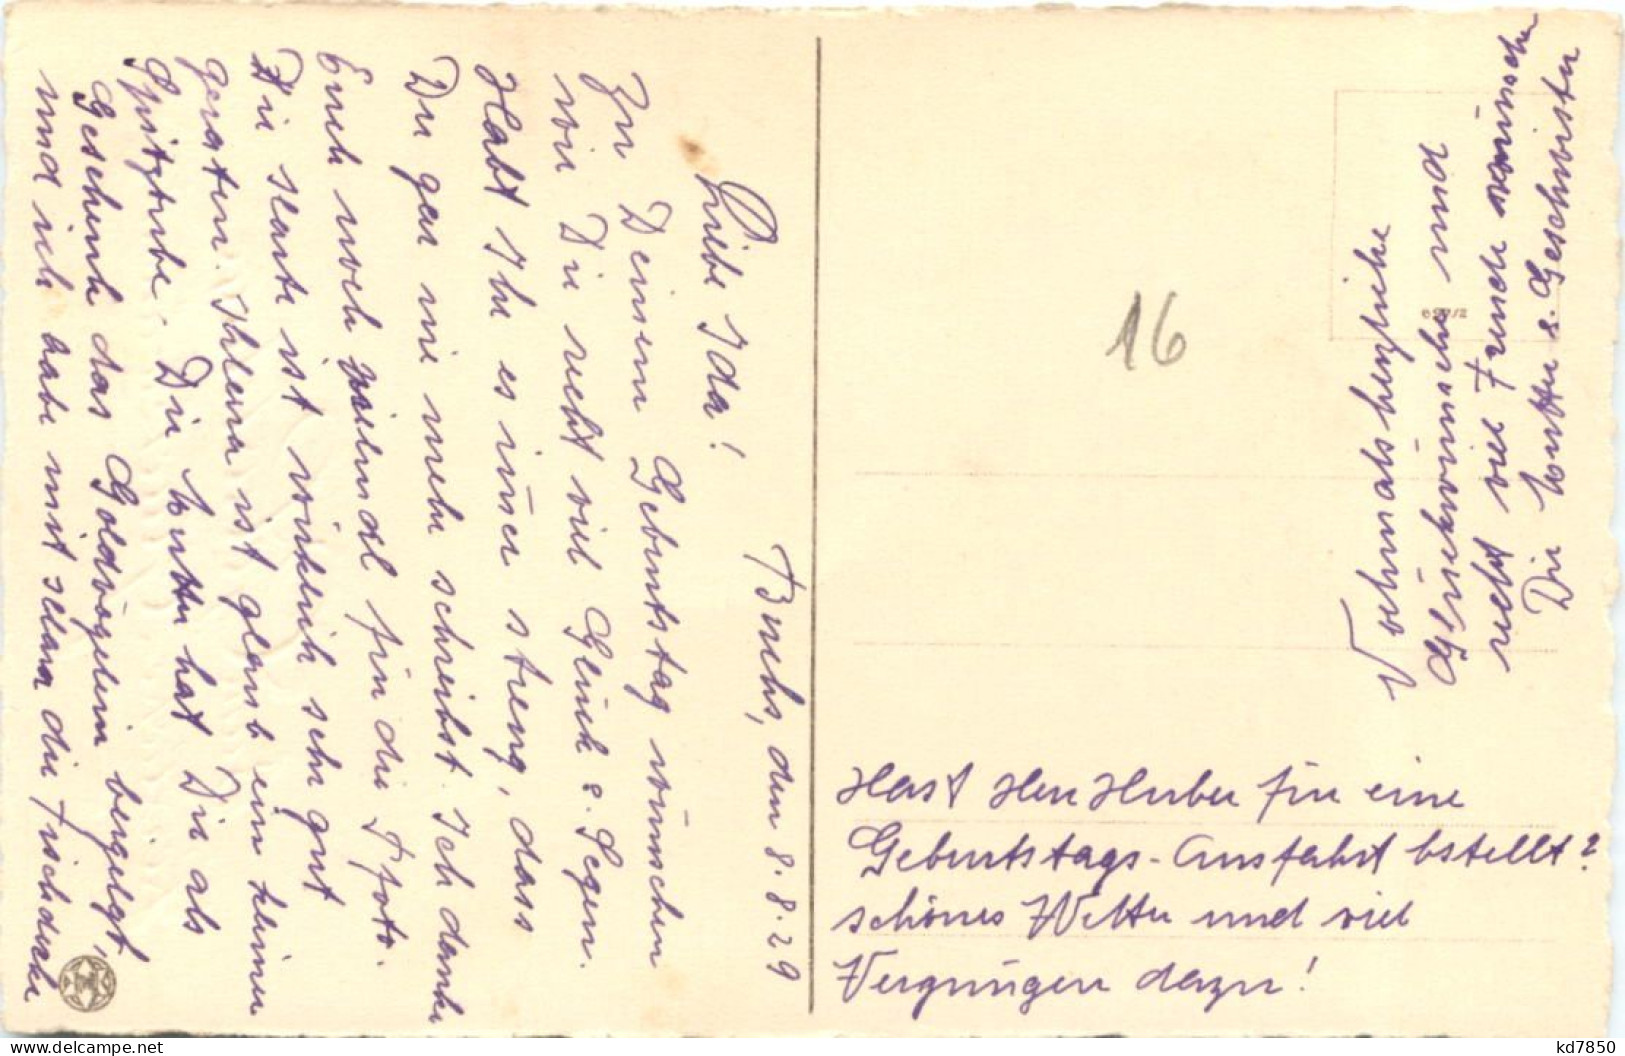 Buchs, den 8.8.29
Liebe Ida!
Zu Deinem Geburtstag wünschen
wir Dir recht viel Glück & Segen.
Habt Ihr es im̄er streng, dass
Du gar nie mehr schreibst. Ich danke
Euch noch vielmal für die Foto.
Die Karte ist wirklich sehr gut
geraten. Ihlena ist glaub ein kleiner
Spitzbube. Die Mutter hat Dir als
Geschenk das Goldvögelein beigelegt,
und ich habe mit die Tischdecke
Nochmals herzliche
Glückwünsche und
recht viel Freude wünschen
Die Mutter & Geschwister
Hast Herr Huber für eine
Geburtstags-Ausfahrt bstellt?
schönes Wetter und viel
Vergnügen dazu!
16
kd7850